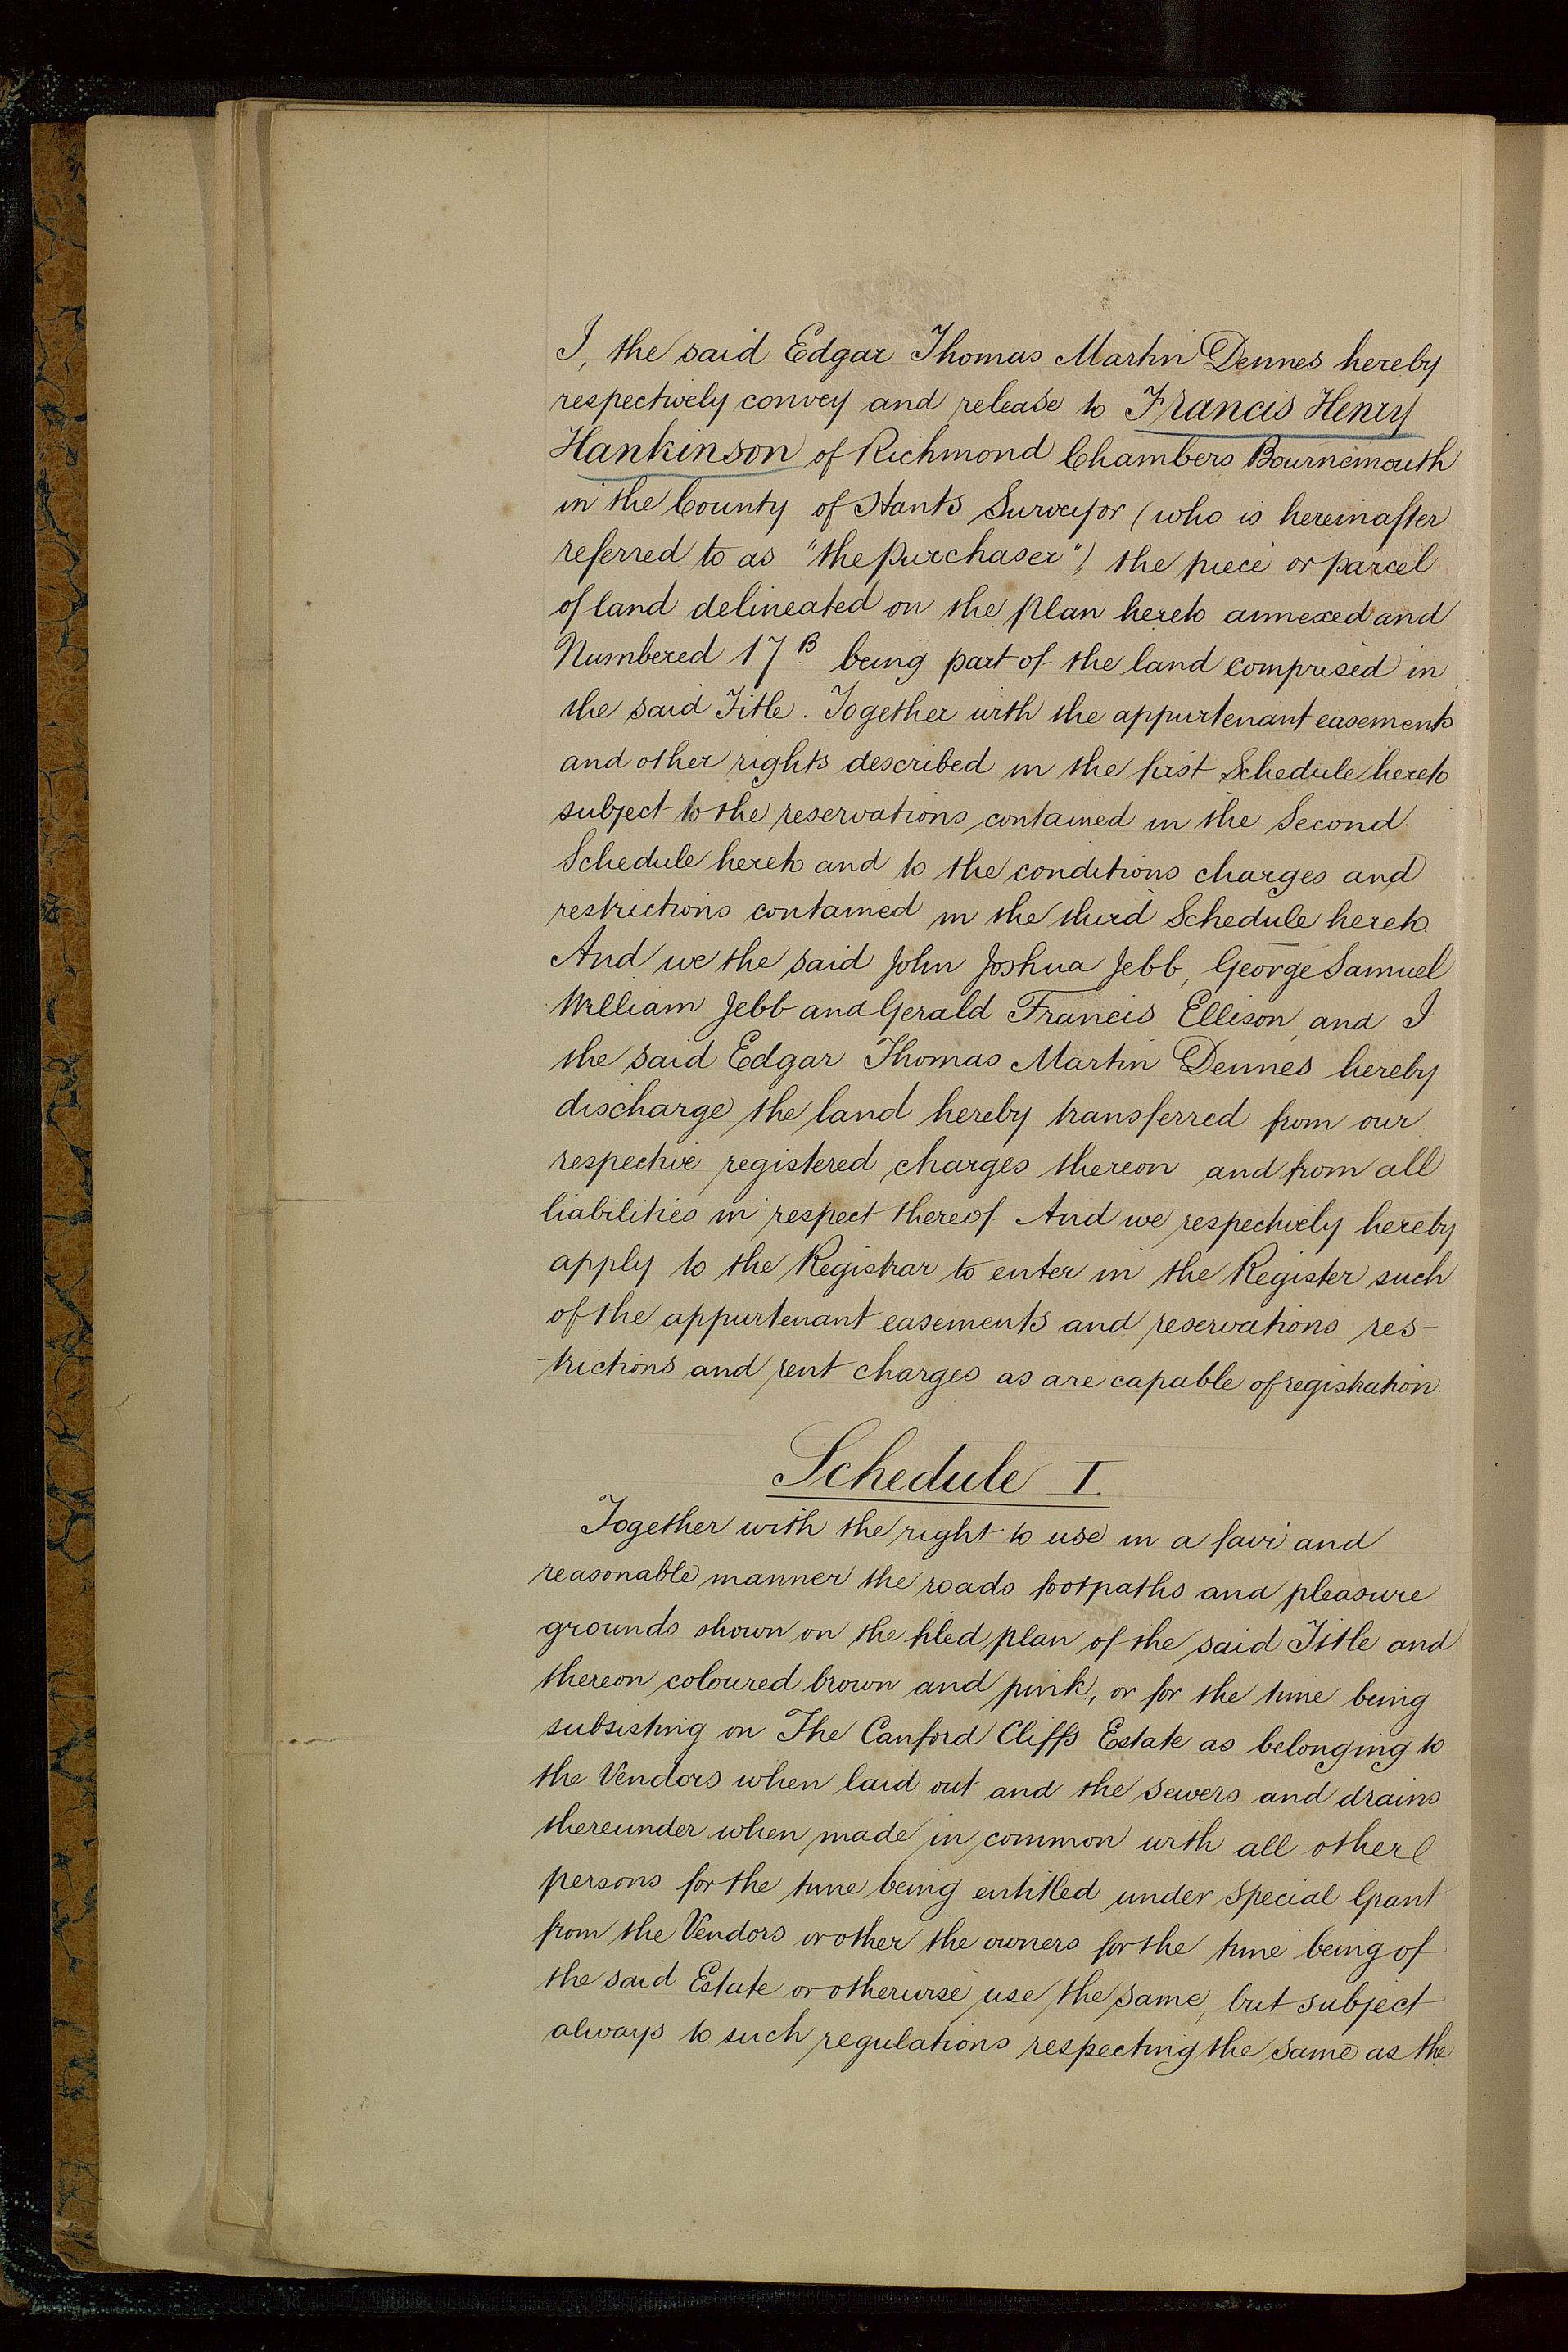 I, the said Edgar Thomas Martin Dennes hereby
respectively convey and release to Francis Henry
Hankinson of Richmond Chambers Bournemouth
in the County of Hants Surveyor (who is hereinafter
referred to as "the purchaser") the piece or parcel
of land delineated on the plan hereto annexed and
Numbered 17B being part of the land comprised in
the said Title. Together with the appurtenant easements
and other rights described in the first Schedule hereto
subject to the reservations contained in the Second
Schedule hereto and to the conditions charges and
restrictions contained in the third Schedule hereto.
And we the said John Joshua Jebb, George Samuel
William Jebb and Gerald Francis Ellison, and I
the said Edgar Thomas Martin Dennes hereby
discharge the land hereby transferred from our
respective registered charges thereon and from all
liabilities in respect thereof And we respectively hereby
apply to the Registrar to enter in the Register such
of the appurtenant easements and reservations res-
-trictions and rent charges as are capable of registration.
Schedule I.
Together with the right to use in a fair and
reasonable manner the roads footpaths and pleasure
grounds shown on the filed plan of the said Title and
thereon coloured brown and pink, or for the time being
subsisting on The Canford Cliffs Estate as belonging to
the Vendors when laid out and the sewers and drains
thereunder when made in common with all other
persons for the time being entitled under special Grant
from the Vendors or other the owners for the time being of
the said Estate or otherwise use the same, but subject
always to such regulations respecting the same as the